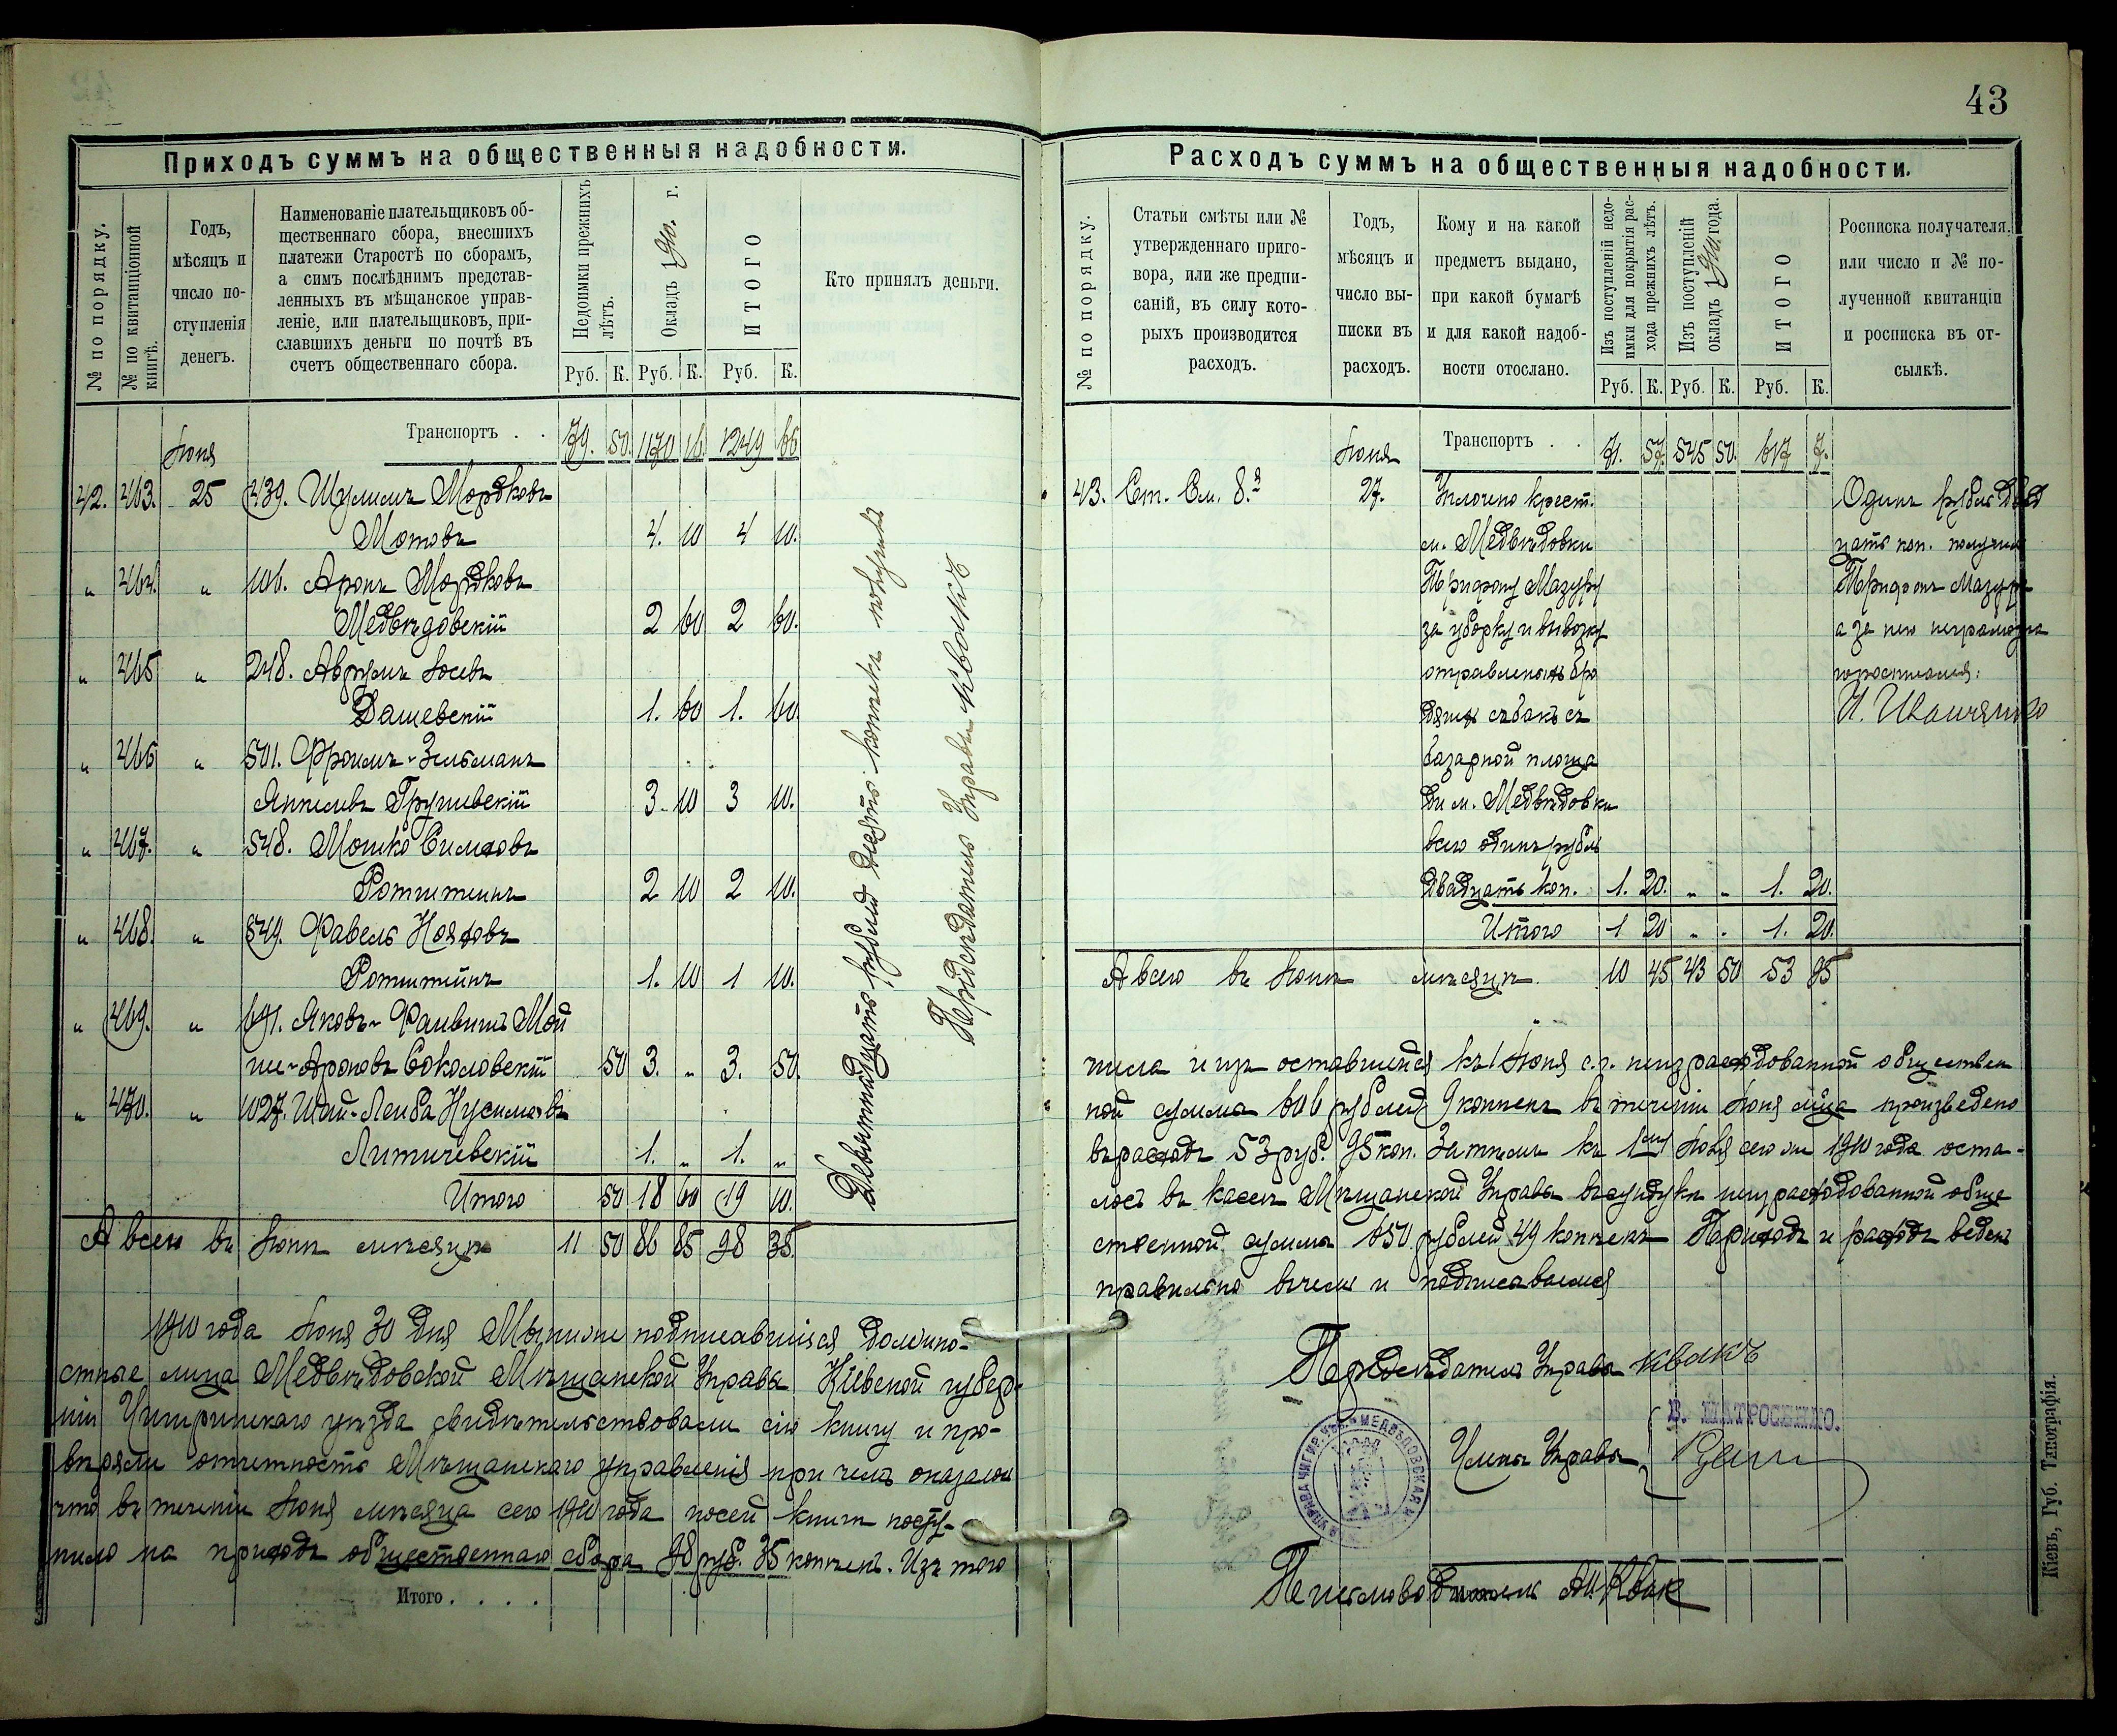 43
Приходъ суммъ на общественныя надобности.
№ по порядку.
№ по квитанціонной книгѣ.
Годъ,
мѣсяцъ и
число по-
ступленія
денегъ.
Наименованіе плательщиковъ об-
щественнаго сбора, внесшихъ
платежи Старостѣ по сборамъ,
а симъ послѣднимъ представ-
ленныхъ въ мѣщанское управ-
леніе, или плательщиковъ, при-
славшихъ деньги по почтѣ въ
счетъ общественнаго сбора.
Недоимки прежнихъ
лѣтъ.
Окладъ 1910 г.
ИТОГО
Кто принялъ деньги.
Руб. К. Руб. К. Руб. К.
Іюня Транспортъ . . 79. 50. 1170 16. 1249 66
42. 463. 25 439. Шулимъ Мордковъ
Мотовъ 4. 10 4 10.
" 464. " 106. Аронъ Мордковъ
Медвѣдовскій 2 60 2 60.
" 465 " 248. Аврумъ Іосевъ
Дашевскій 1. 60 1. 60.
" 466 " 501. Фроимъ-Зельманъ
Анкелевъ Грушевскій 3. 10 3 10.
" 467. " 548. Мошко Симховъ
Ротштеинъ 2 10 2 10.
" 468. " 549. Фавель Нояховъ
Ротштеинъ 1. 10 1 10.
" 469. " 691. Яковъ-Фаивишъ Мой
ше-Ароновъ Соколовскій 50 3. " 3. 50.
" 470. " 1027. Шай-Лейба Нусимовъ
Литичевскій 1. " 1. "
Итого 50 18 60 19 10.
А всего въ Іюнѣ мѣсяцѣ 11 50 86 85 98 35.
Девятнадцать рублей десять копѣекъ получилъ
Предсѣдатель Управы Квакъ
1910 года Іюня 30 дня Мы ниже подписавшіяся должно-
стные лица Медвѣдовской Мѣщанской Управы Кіевской губер-
ніи Чигиринскаго уѣзда свидѣтельствовали сію книгу и про-
вѣряли отчетность Мѣщанскаго управленія при чемъ оказалось
что въ теченіи Іюня мѣсяца сего 1910 года по сей книгѣ посту-
пило на приходъ общественнаго сбора 98 руб. 35 копѣекъ. Изъ того
Итого . . . .
Расходъ суммъ на общественныя надобности.
№ по порядку.
Статьи смѣты или №
утвержденнаго приго-
вора, или же предпи-
саній, въ силу кото-
рыхъ производится
расходъ.
Годъ,
мѣсяцъ и
число вы-
писки въ
расходъ.
Кому и на какой
предметъ выдано,
при какой бумагѣ
и для какой надоб-
ности отослано.
Изъ поступленій недо-
имки для покрытія рас-
хода прежнихъ лѣтъ.
Изъ поступленій
окладъ 1910 года.
ИТОГО
Росписка получателя,
или число и № по-
лученной квитанціи
и росписка въ от-
сылкѣ.
Руб. К. Руб. К. Руб. К.
Іюня Транспортъ . . 71. 57. 545 50. 617 7.
43. Ст. См. 8. 27. Уплочено крест. Одинъ рубль двад
м. Медвѣдовки цать коп. получилъ
Трифону Мазуру Трифонъ Мазуръ
за уборку и вывозку а за него неграмотна
отравленныхъ бро росписался:
дящихъ собакъ съ И. Иващенко
базарной площа
ди м. Медвѣдовки
всего одинъ рубль
двадцать коп. 1. 20. " " 1. 20.
Итого 1 20 " " 1. 20.
А всего въ Іюнѣ мѣсяцѣ 10 45 43 50 53 95
числа и изъ оставшейся къ 1 Іюня с.г. неизрасходованной обществен
ной суммы 606 рублей 9 копѣекъ въ теченіи Іюня м-ца произведено
въ расходъ 53 руб. 95 коп. Затѣмъ къ 1му Іюля сего же 1910 года оста-
лось въ кассѣ Мѣщанской Управы въ сундукѣ неизрасходованной обще
ственной суммы 650 рублей 49 копѣекъ Приходъ и расходъ веденъ
правильно въ чемъ и подписываемся
Предсѣдатель Управы Квакъ
В. МАТРОСЕНКО.
Члены Управы
Письмоводитель М. Квак
Кіевъ, Губ. Типографія.